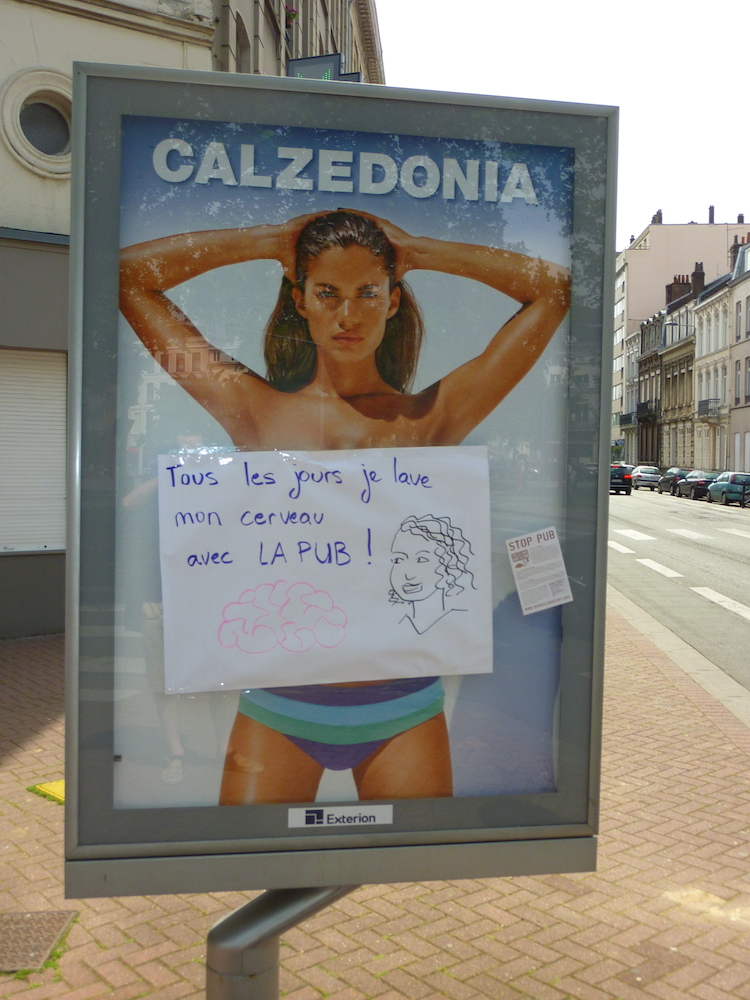 CALZEDONIA
Tous les jours je lave
mon cerveau
avec LA PUB !
STOP PUB
Exterion